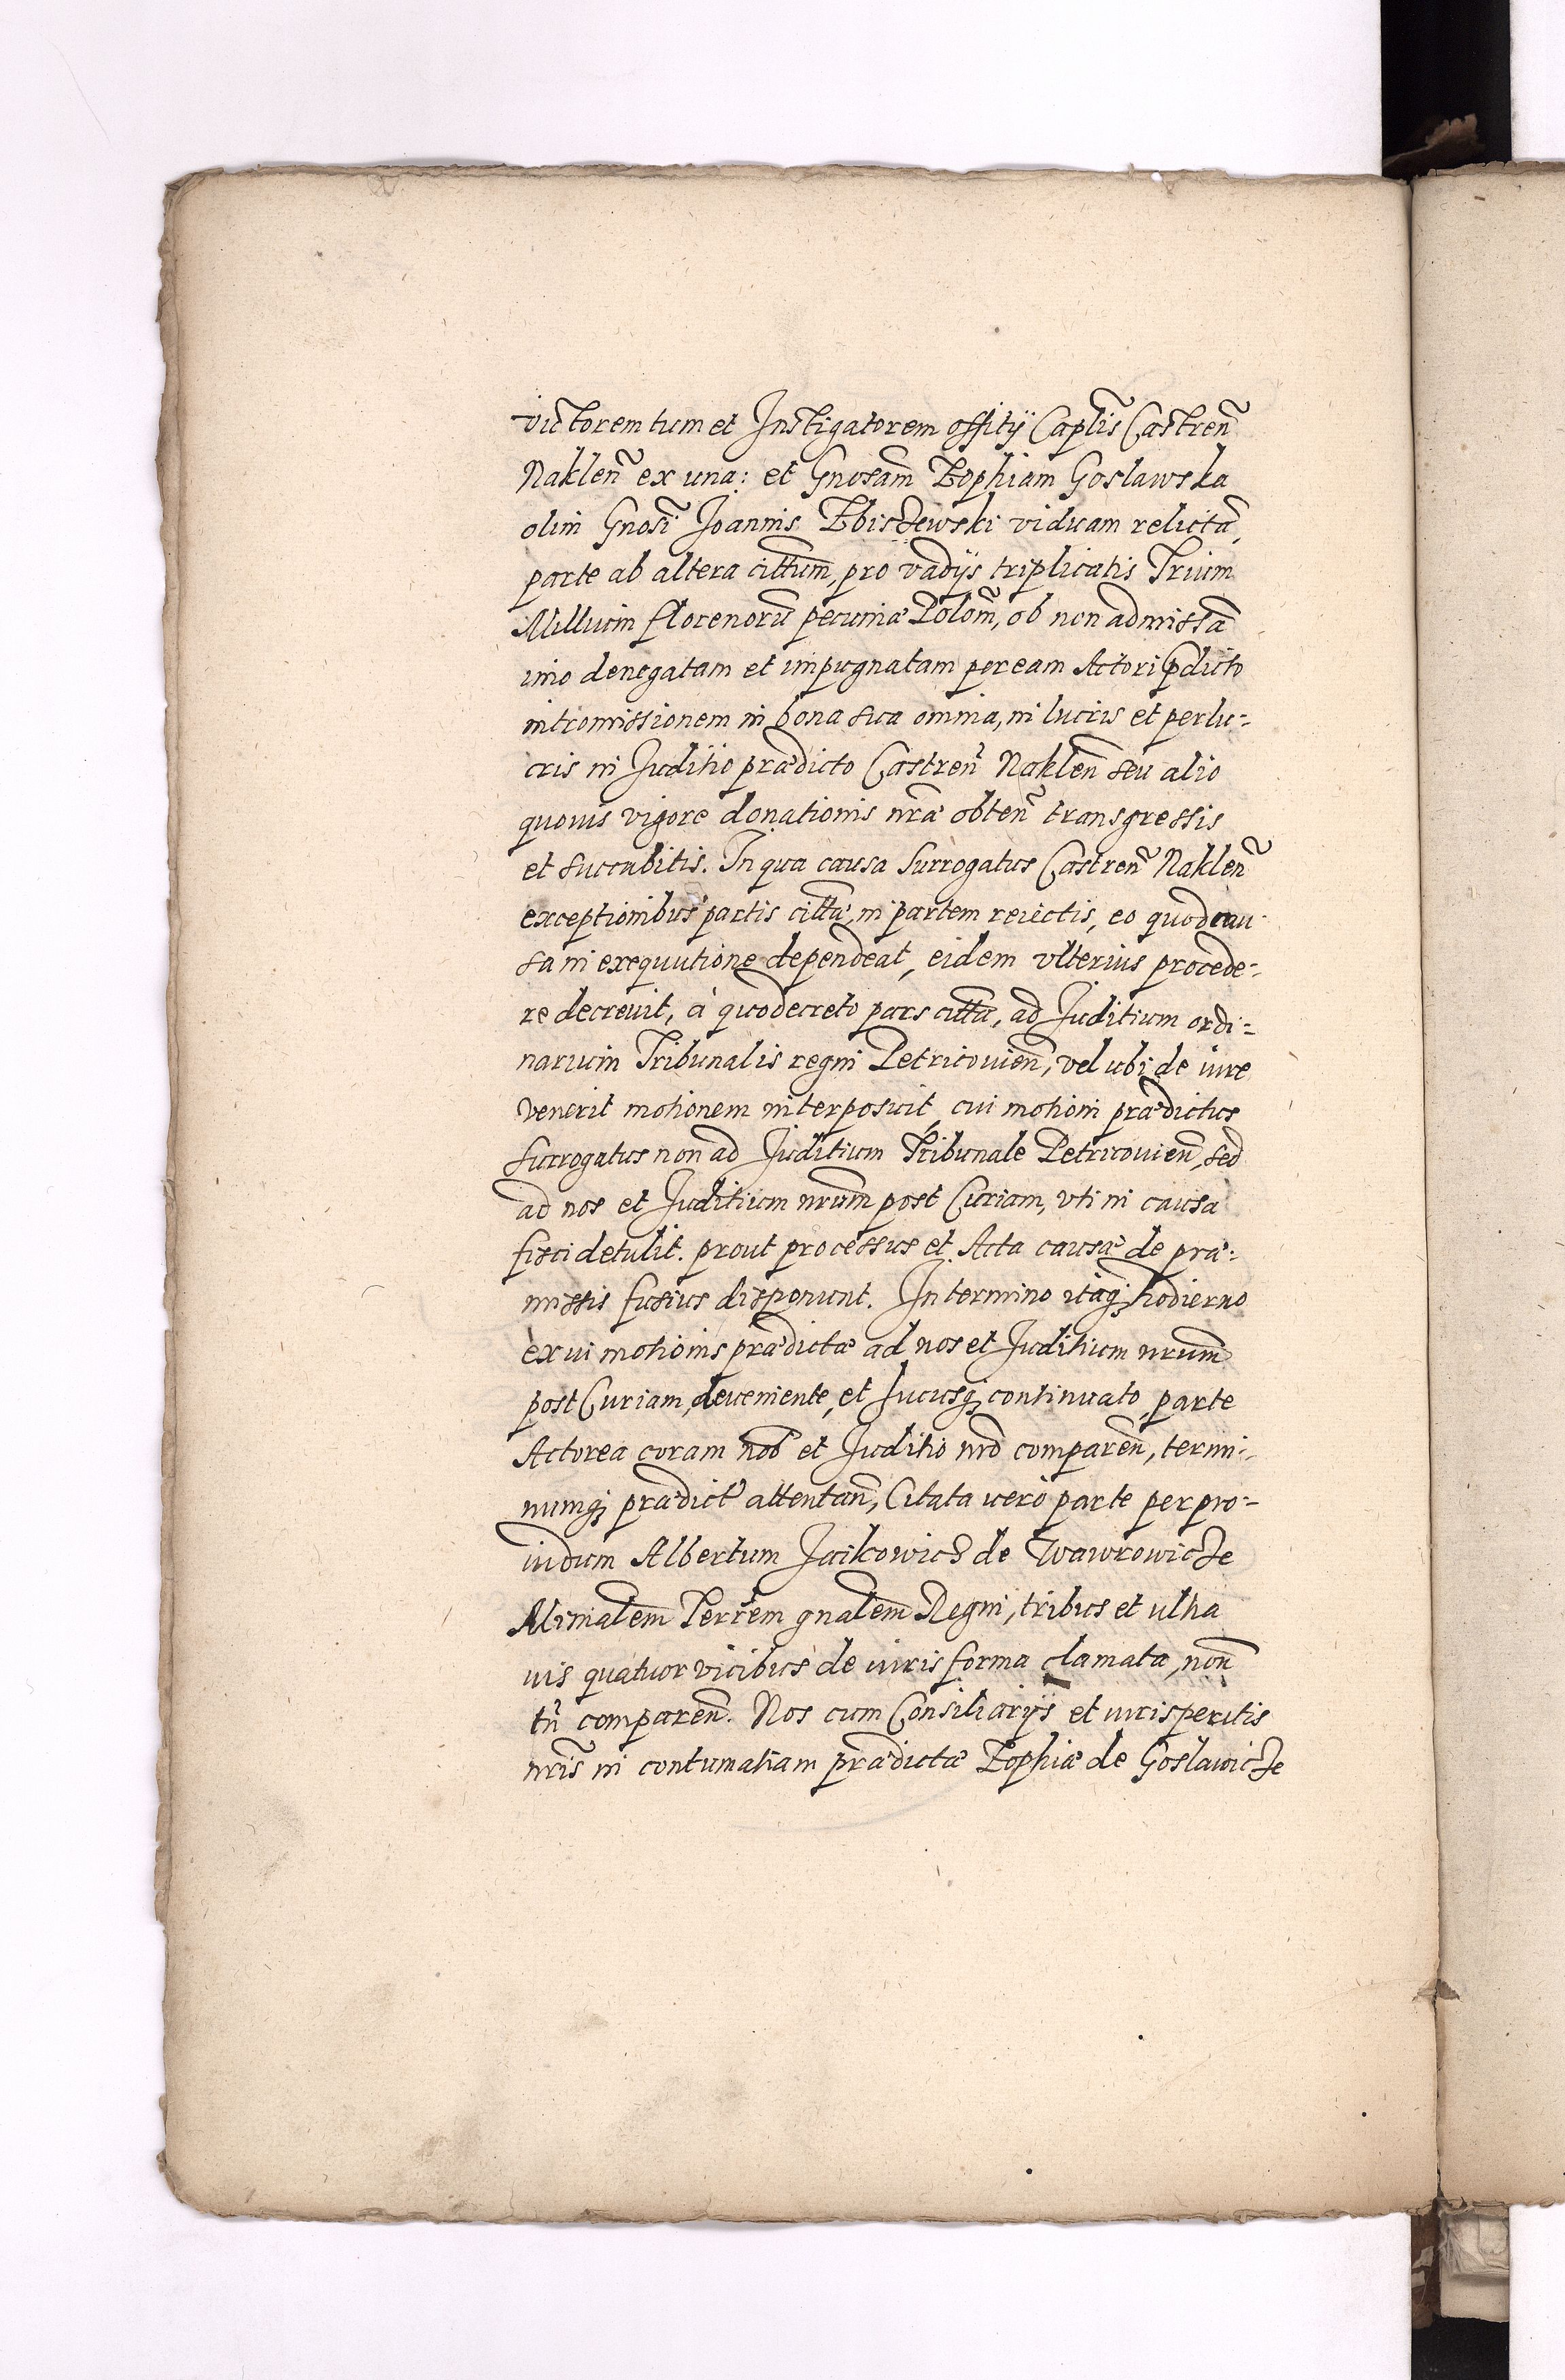 victorem tum et Instigatorem offitÿ Caplis̃ Castren̄
Naklen̄ ex una: et Gnosam̄ Zophiam Goslawska
olim Gnosi̅ Joannis Zbiszewski viduam relictā,
parte ab altera cittum̄, pro vadÿs triplicatis Trium
Millium florenorū pecuniæ Polom̄, ob non admissā
imo denegatam et impugnatam per eam Actori p̄dicto
intromissionem in bona sua omnia, in lucris et perlu-
cris in Juditio prædicto Castren̄ Naklen̄ seu alio
quovis vigore donationis nr̄æ obten̄ transgressis
et succubitis. In qua causa Surrogatus Castren̄ Naklen̄
exceptionibus partis cittǣ, in partem reiectis, eo quod cau-
sa in exequutione dependeat, eidem vlterius procede-
re decrevit, à quo decreto pars citta̅, ad Juditium ordi-
narium Tribunalis regni Petricovien̄, vel ubi de iure
venerit motionem interposuit, cui motioni prædictus
surrogatus non ad Juditium Tribunale Petricovien̄, sed
ad nos et Juditium nrum̄ post Curiam, vti in causa
fisci detulit. prout processus et Acta causæ de præ-
missis fusius disponunt. In termino itaqꝫ hodierno
ex vi motionis prædictæ ad nos et Juditium nrum̄
post Curiam, deveniente, et hucusqꝫ continuato, parte
Actorea coram nob̄ et Juditio nrō comparen̄, termi-
numqꝫ prædict̄ attentan̄, Citata vero parte per pro-
uidum Albertum Jaikowicz de Wawrowicze
Mīnialem̄ Terrēm gnalem̄ Regni, tribus et ultia
vis quatuor vicibus de iuris forma clamata, non̄
tn̄ comparen̄. Nos cum Consiliarÿs et iurisperitis
nris̄ in contumatiam prædictæ Zophiæ de Goslawicze